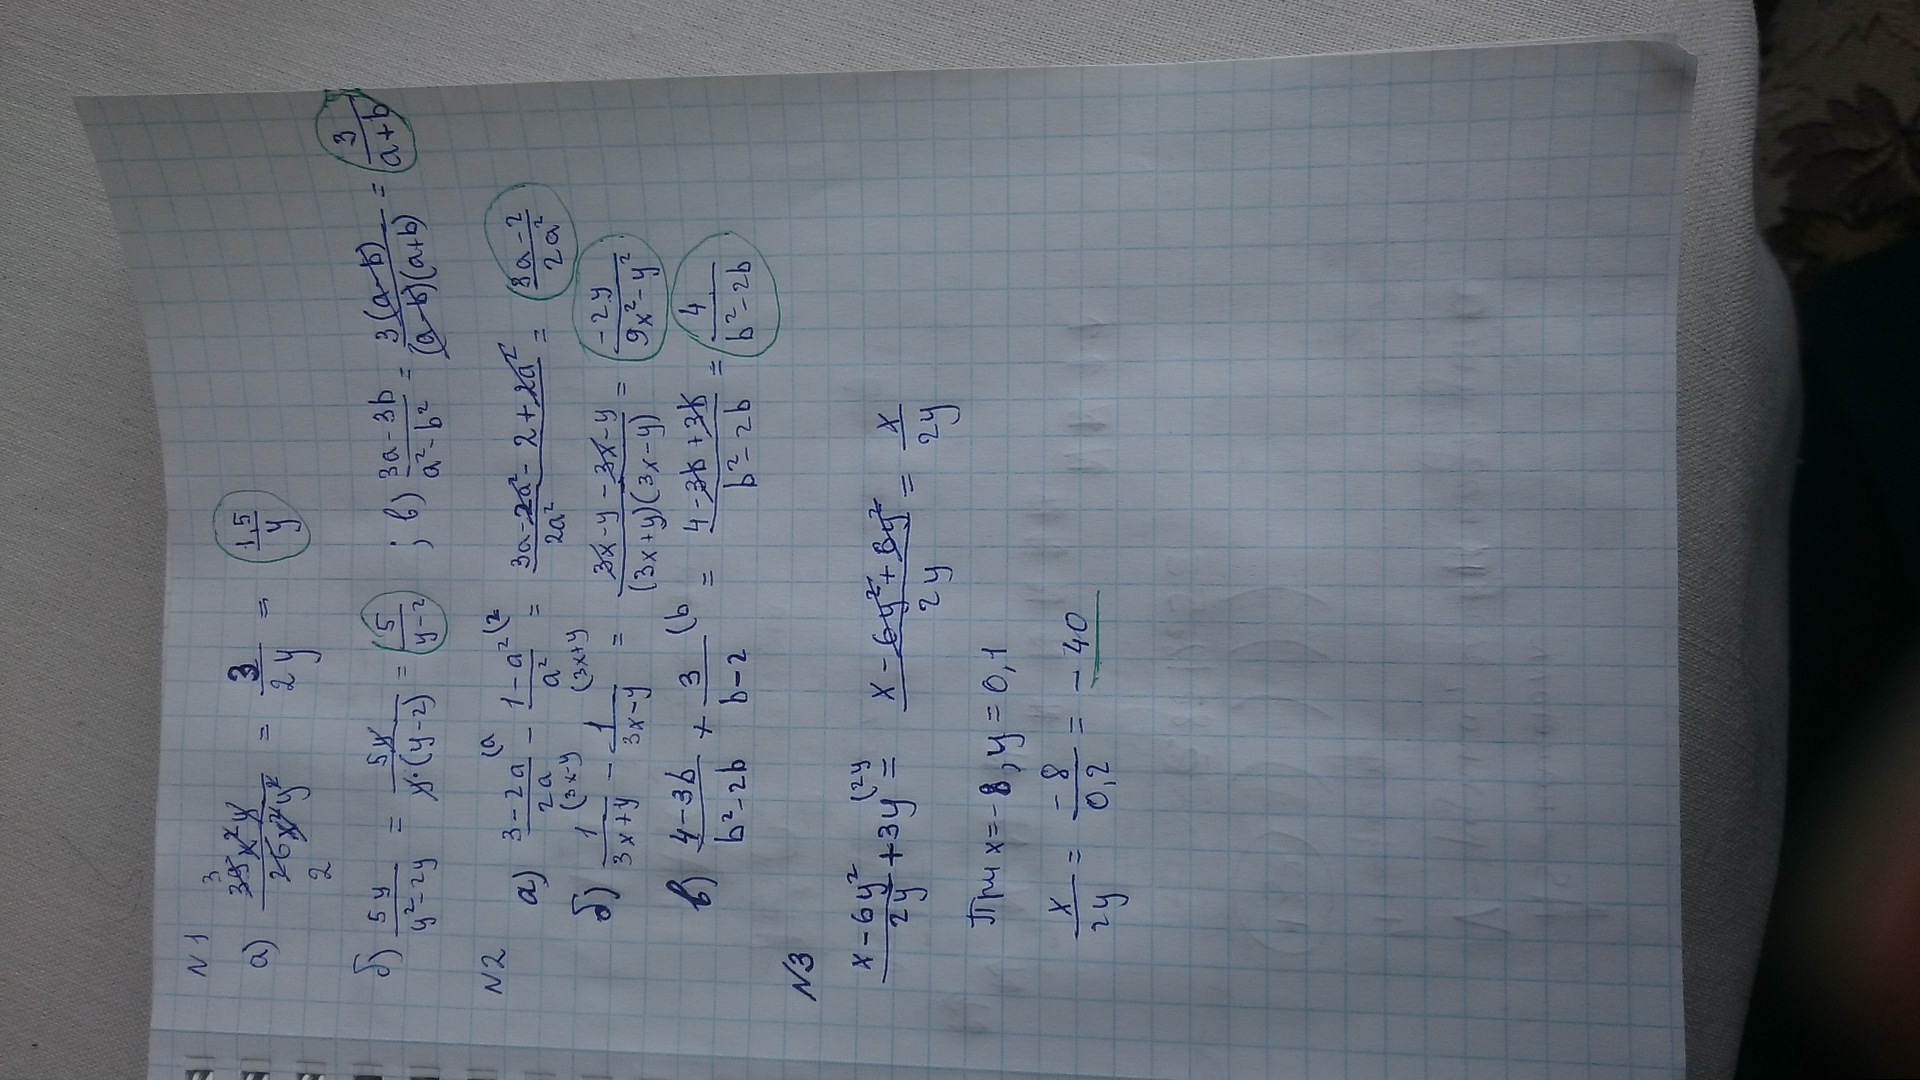 N1
а) 3 39x²y / 26x²y² 2 = 3/2y = 1,5/y
б) 5y/y²-2y = 5y/y·(y-2) = 5/y-2 ; в) 3a-3b/a²-b² = 3(a-b)/(a-b)(a+b) = 3/a+b
N2
а) 3-2a/2a (a - 1-a²/a² (2 = 3a-2a²-2+2a²/2a² = 3a-2/2a²
б) 1/3x+y (3x-y - 1/3x-y (3x+y = 3x-y-3x-y/(3x+y)(3x-y) = -2y/9x²-y²
в) 4-3b/b²-2b + 3/b-2 (b = 4-3b+3b/b²-2b = 4/b²-2b
N3
x-6y²/2y +3y (2y = x-6y²+6y²/2y = x/2y
При x=-8, y=0,1
x/2y = -8/0,2 = -40